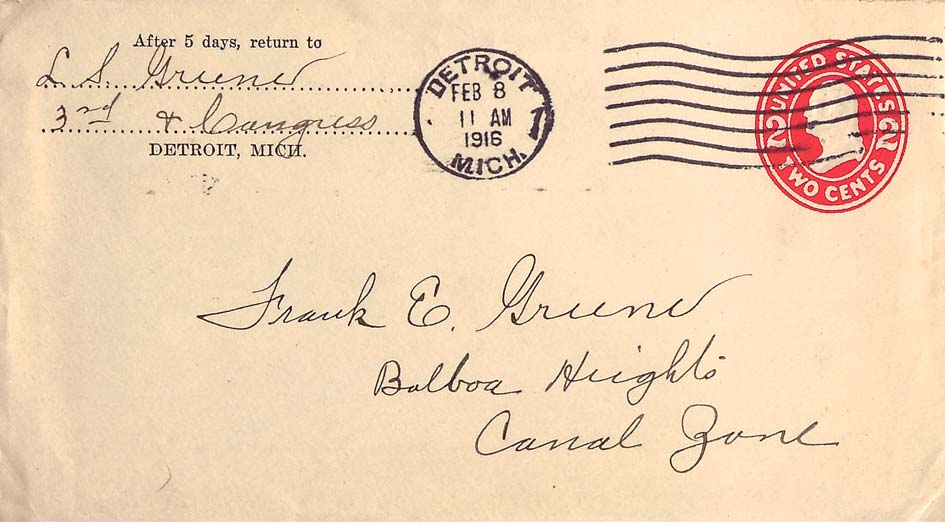 After 5 days, return to
L. S. Greene
3rd & Congress
DETROIT, MICH.
DETROIT
FEB 8
11 AM
1916
MICH.
1
UNITED STATES
2 2
TWO CENTS
Frank E. Greene
Balboa Heights
Canal Zone